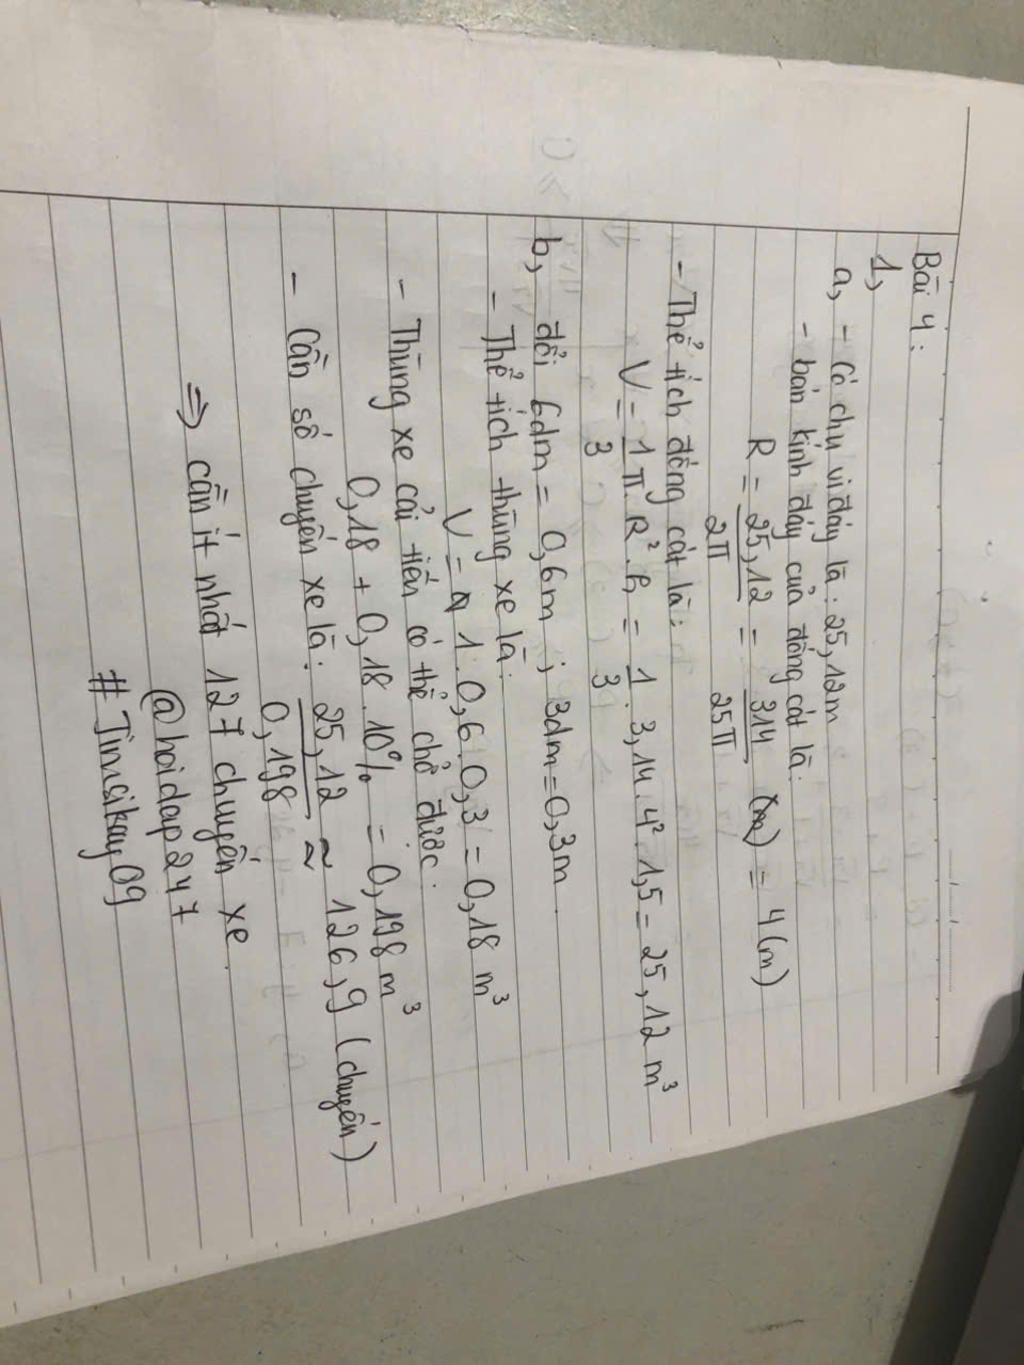 Bài 4:
1,
a, - Có chu vi đáy là: 25,12m
- bán kính đáy của đống cát là:
R = 25,12 / 2π = 314 / 25π (m) = 4(m)
- Thể tích đống cát là:
V = 1/3 π. R². h = 1/3 . 3,14 . 4² . 1,5 = 25,12 m³
b, đổi 6dm = 0,6m ; 3dm = 0,3m
- Thể tích thùng xe là:
V = 1 . 0,6 . 0,3 = 0,18 m³
- Thùng xe cải tiến có thể chở được:
0,18 + 0,18 . 10% = 0,198 m³
- Cần số chuyến xe là: 25,12 / 0,198 ≈ 126,9 (chuyến)
⇒ cần ít nhất 127 chuyến xe.
@hoidap247
#Jinsikay09